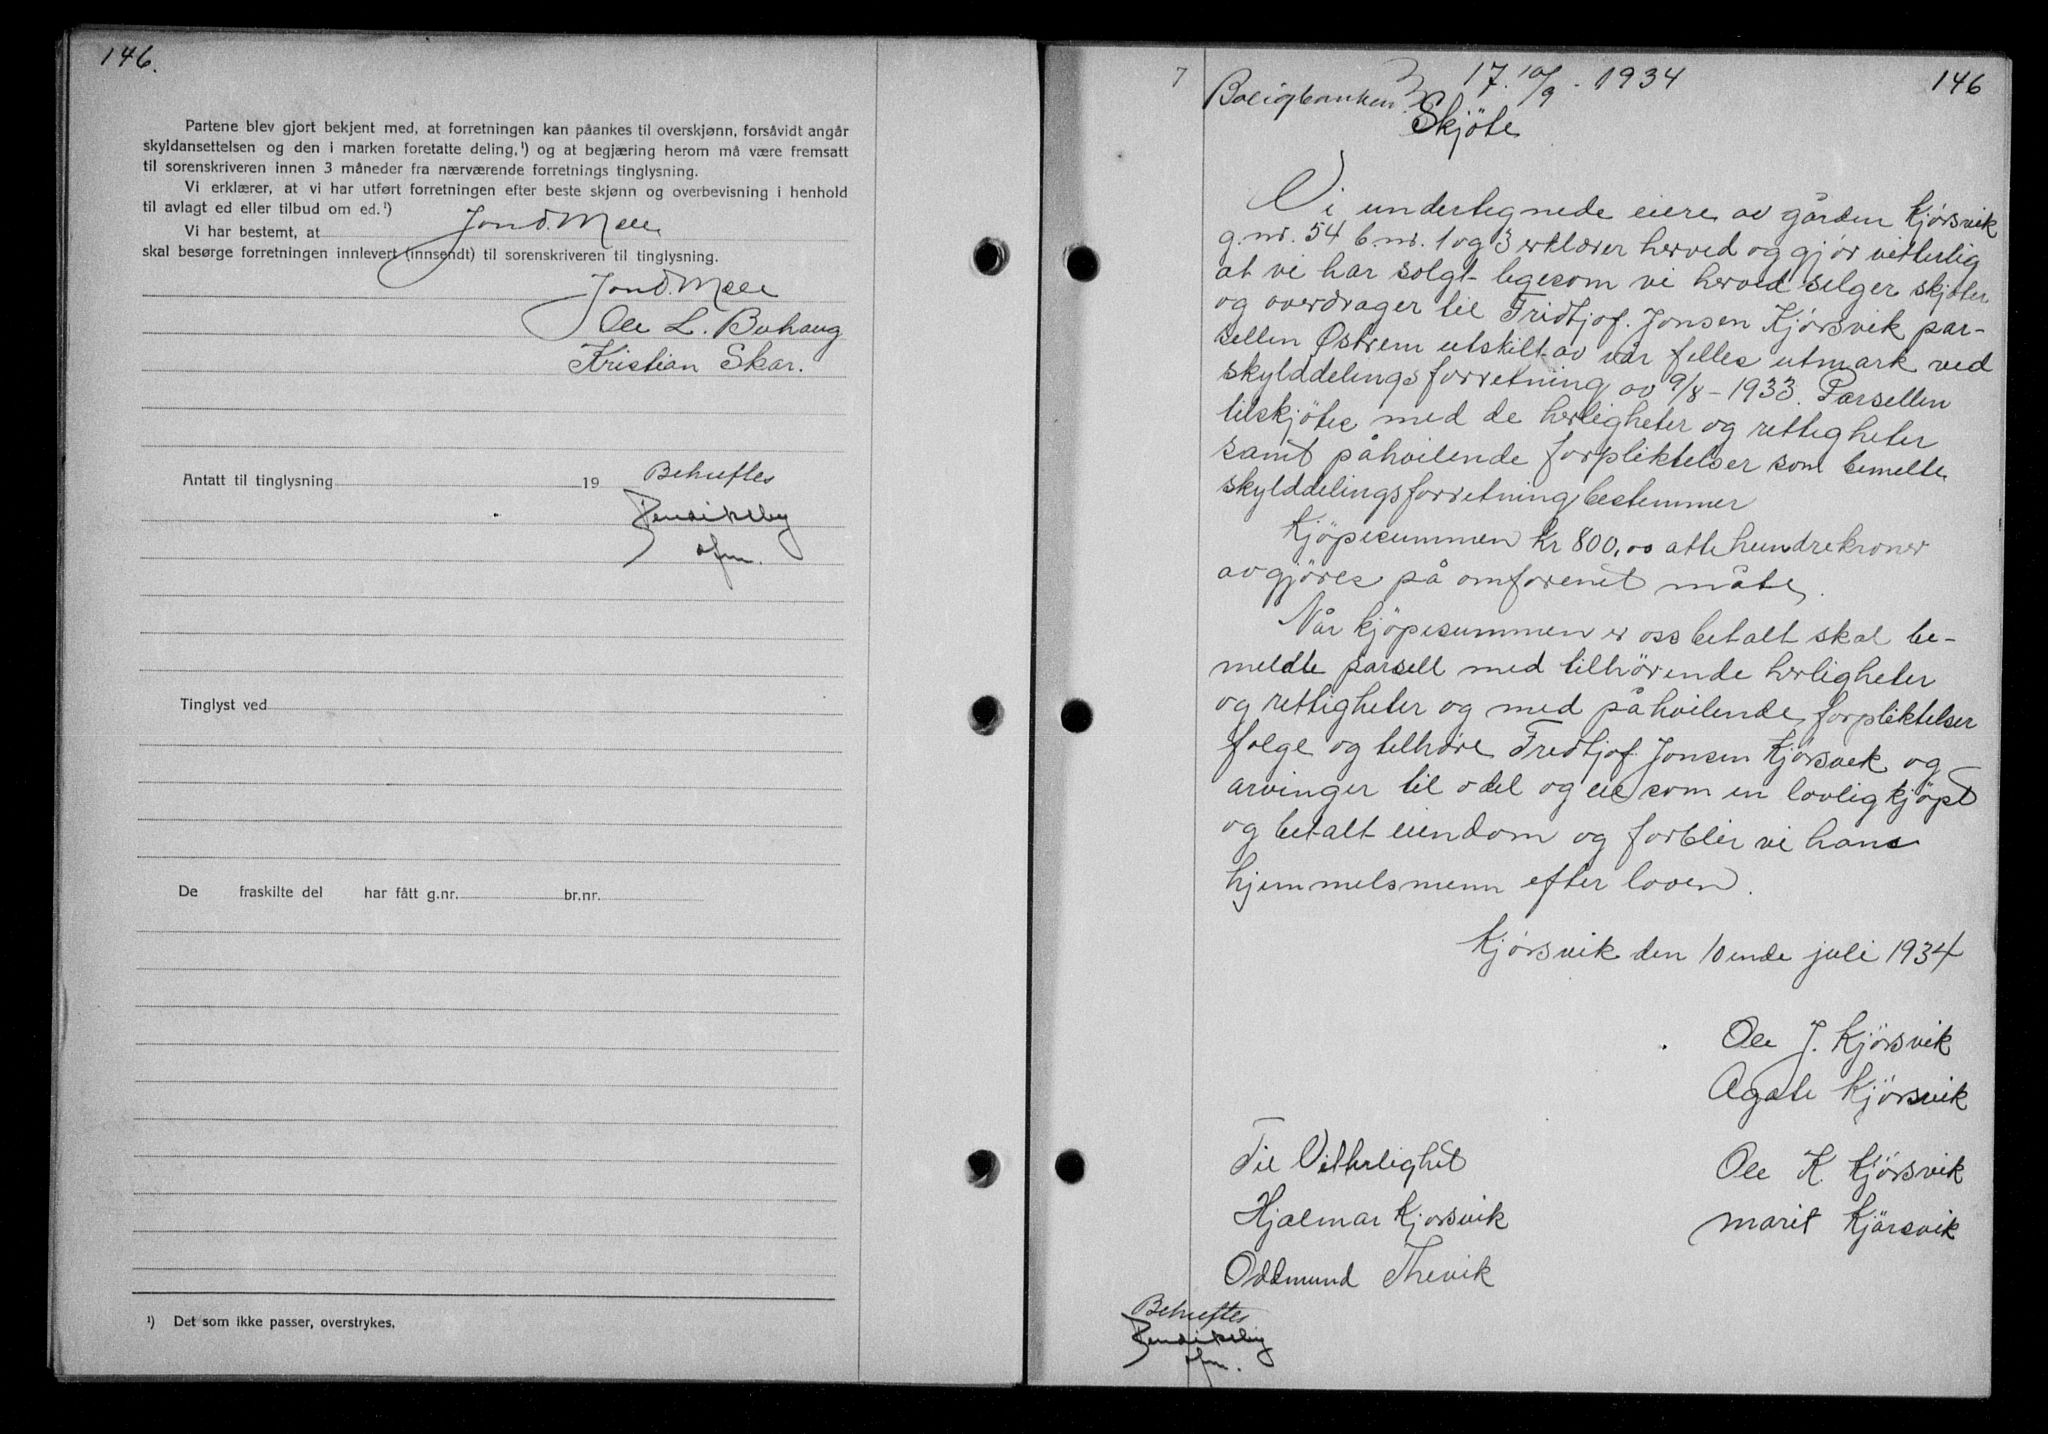 146.
Partene blev gjort bekjent med, at forretningen kan påankes til overskjønn, forsåvidt angår
skyldansettelsen og den i marken foretatte deling,¹) og at begjæring herom må være fremsatt
til sorenskriveren innen 3 måneder fra nærværende forretnings tinglysning.
Vi erklærer, at vi har utført forretningen efter beste skjønn og overbevisning i henhold
til avlagt ed eller tilbud om ed.¹)
Vi har bestemt, at Jon O. Mele
skal besørge forretningen innlevert (innsendt) til sorenskriveren til tinglysning.
Jon O. Mele
Ole L. Buhaug
Kristian Skar.
Antatt til tinglysning 19
Bekreftes
ofm.
Tinglyst ved
De fraskilte del har fått g.nr. br.nr.
¹) Det som ikke passer, overstrykes.
7
Boligbanken 17. 10/9 - 1934
146
Skjöte
Vi undertegnede eiere av gården Kjørsvik
g.nr. 54 b.nr. 1 og 3 erklærer herved og gjør vitterlig
at vi har solgt ligesom vi herved selger skjøter
og overdrager til Fridtjof. Jonsen Kjørsvik par-
sellen Østrem utskilt av vår felles utmark ved
skylddelingsforretning av 9/8 - 1933. Parsellen
tilskjötes med de herligheter og rettigheter
samt påhvilende forpliktelser som bemelte
skylddelingsforretning bestemmer
Kjöpesummen kr 800,00 attehundrekroner
avgjöres på omforenet måte.
Når kjöpesummen er oss betalt skal be-
meldte parsell med tilhörende herligheter
og rettigheter og med påhvilende forpliktelser
følge og tilhøre Fredtjof. Jonsen Kjørsvik og
arvinger til odel og eie som en lovlig kjöpt
og betalt eiendom og forblir vi hans
hjemmelsmenn efter loven.
Kjørsvik den 10ende juli 1934
Ole J. Kjörsvik
Agate Kjörsvik
Til Vitterlighet
Ole K. Kjörsvik
Hjalmar Kjorsvik
Marit Kjörsvik
Oddmund Thevik
Bekreftes
ofm.